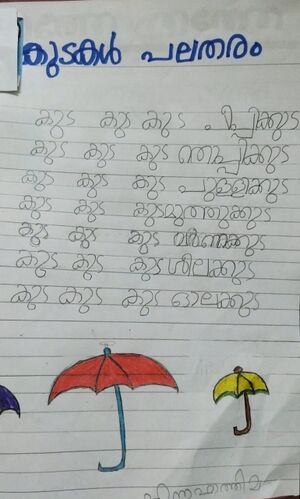 കുടകൾ പലതരം
കുട കുട കുട പീപ്പിക്കുട
കുട കുട കുട തൊപ്പിക്കുട
കുട കുട കുട പുള്ളിക്കുട
കുട കുട കുട മുത്തുക്കുട
കുട കുട കുട വർണക്കുട
കുട കുട കുട ശീലക്കുട
കുട കുട കുട ഓലക്കുട